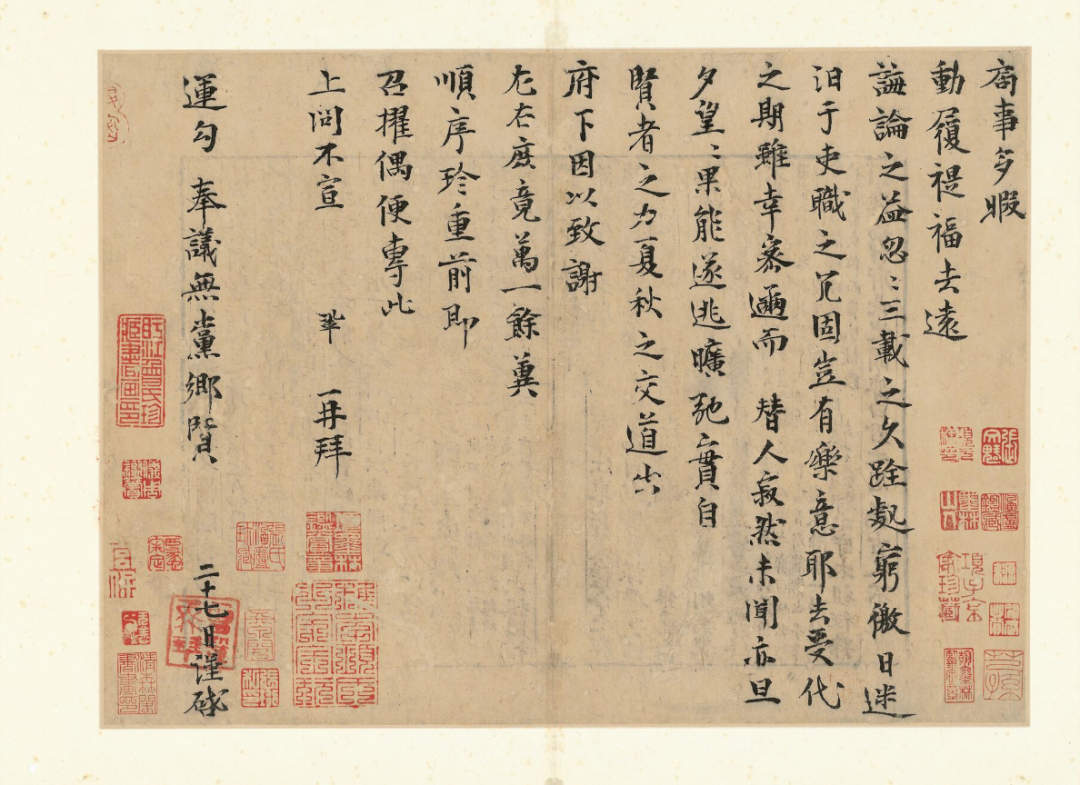 局事多暇
動履禔福去遠
誨論之益忽〻三載之久跧處窮徼日迷
汨于吏職之冗固豈有樂意耶去受代
之期雖幸密邇而 替人寂然未聞亦旦
夕望〻果能遂逃曠弛實自
賢者之力夏秋之交道出
府下因以致謝
左右庶竟萬一餘冀
順序珍重前即
召擢偶便專此
上問不宣 鞏 再拜
運勾 奉議無黨鄉賢
二十七日謹啟